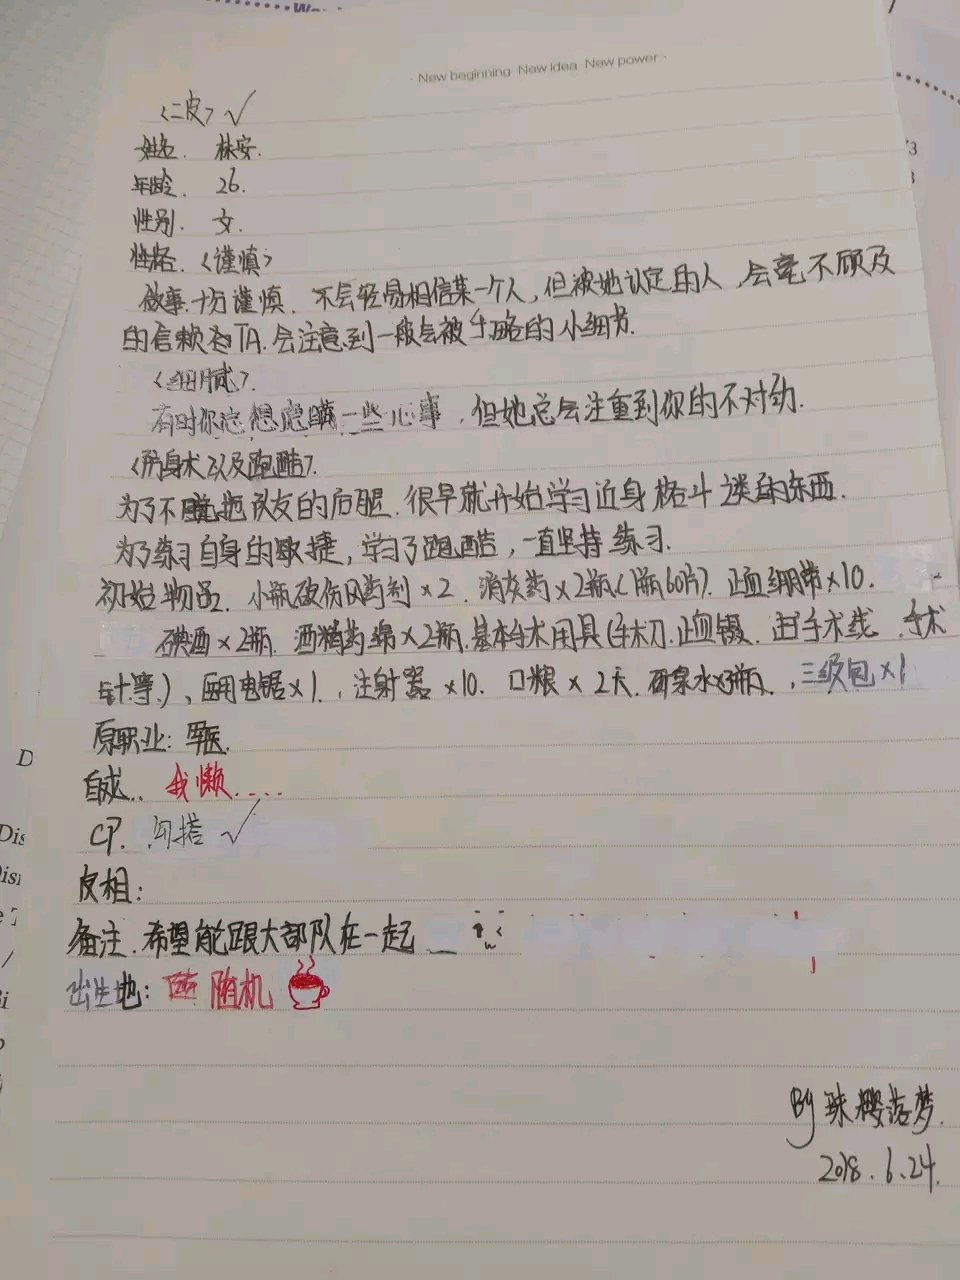 New beginning New idea New power
<二皮>√
姓名. 林安.
年龄. 26.
性别. 女.
性格.<谨慎>
做事十分谨慎. 不会轻易相信某一个人,但被她认定的人,会毫不顾及
的信赖着TA.会注意到一般会被牛略的小细节.
<细腻>.
有时你总想隐瞒一些心事,但她总会注重到你的不对劲.
<防身术以及跑酷>.
为了不拖队友的后腿.很早就开始学习近身格斗类的东西.
为了练习自身的敏捷,学习了跑酷,一直坚持练习.
初始物品. 小瓶破伤风药剂×2. 消炎药×2瓶(1瓶60片). 止血绷带×10.
碘酒×2瓶. 酒精药绵×2瓶.基本手术用具(手术刀.止血镊. 手术线.手术
针.等.)、医用电锯×1.,注射器×10. 口粮×2天. 矿泉水×3瓶.,三级包×1
原职业:军医.
自戏.. 我懒....
CP. 勾搭√
皮相:
备注.希望能跟大部队在一起
出生地: 随机
By 珠樱落梦.
2018.6.24.